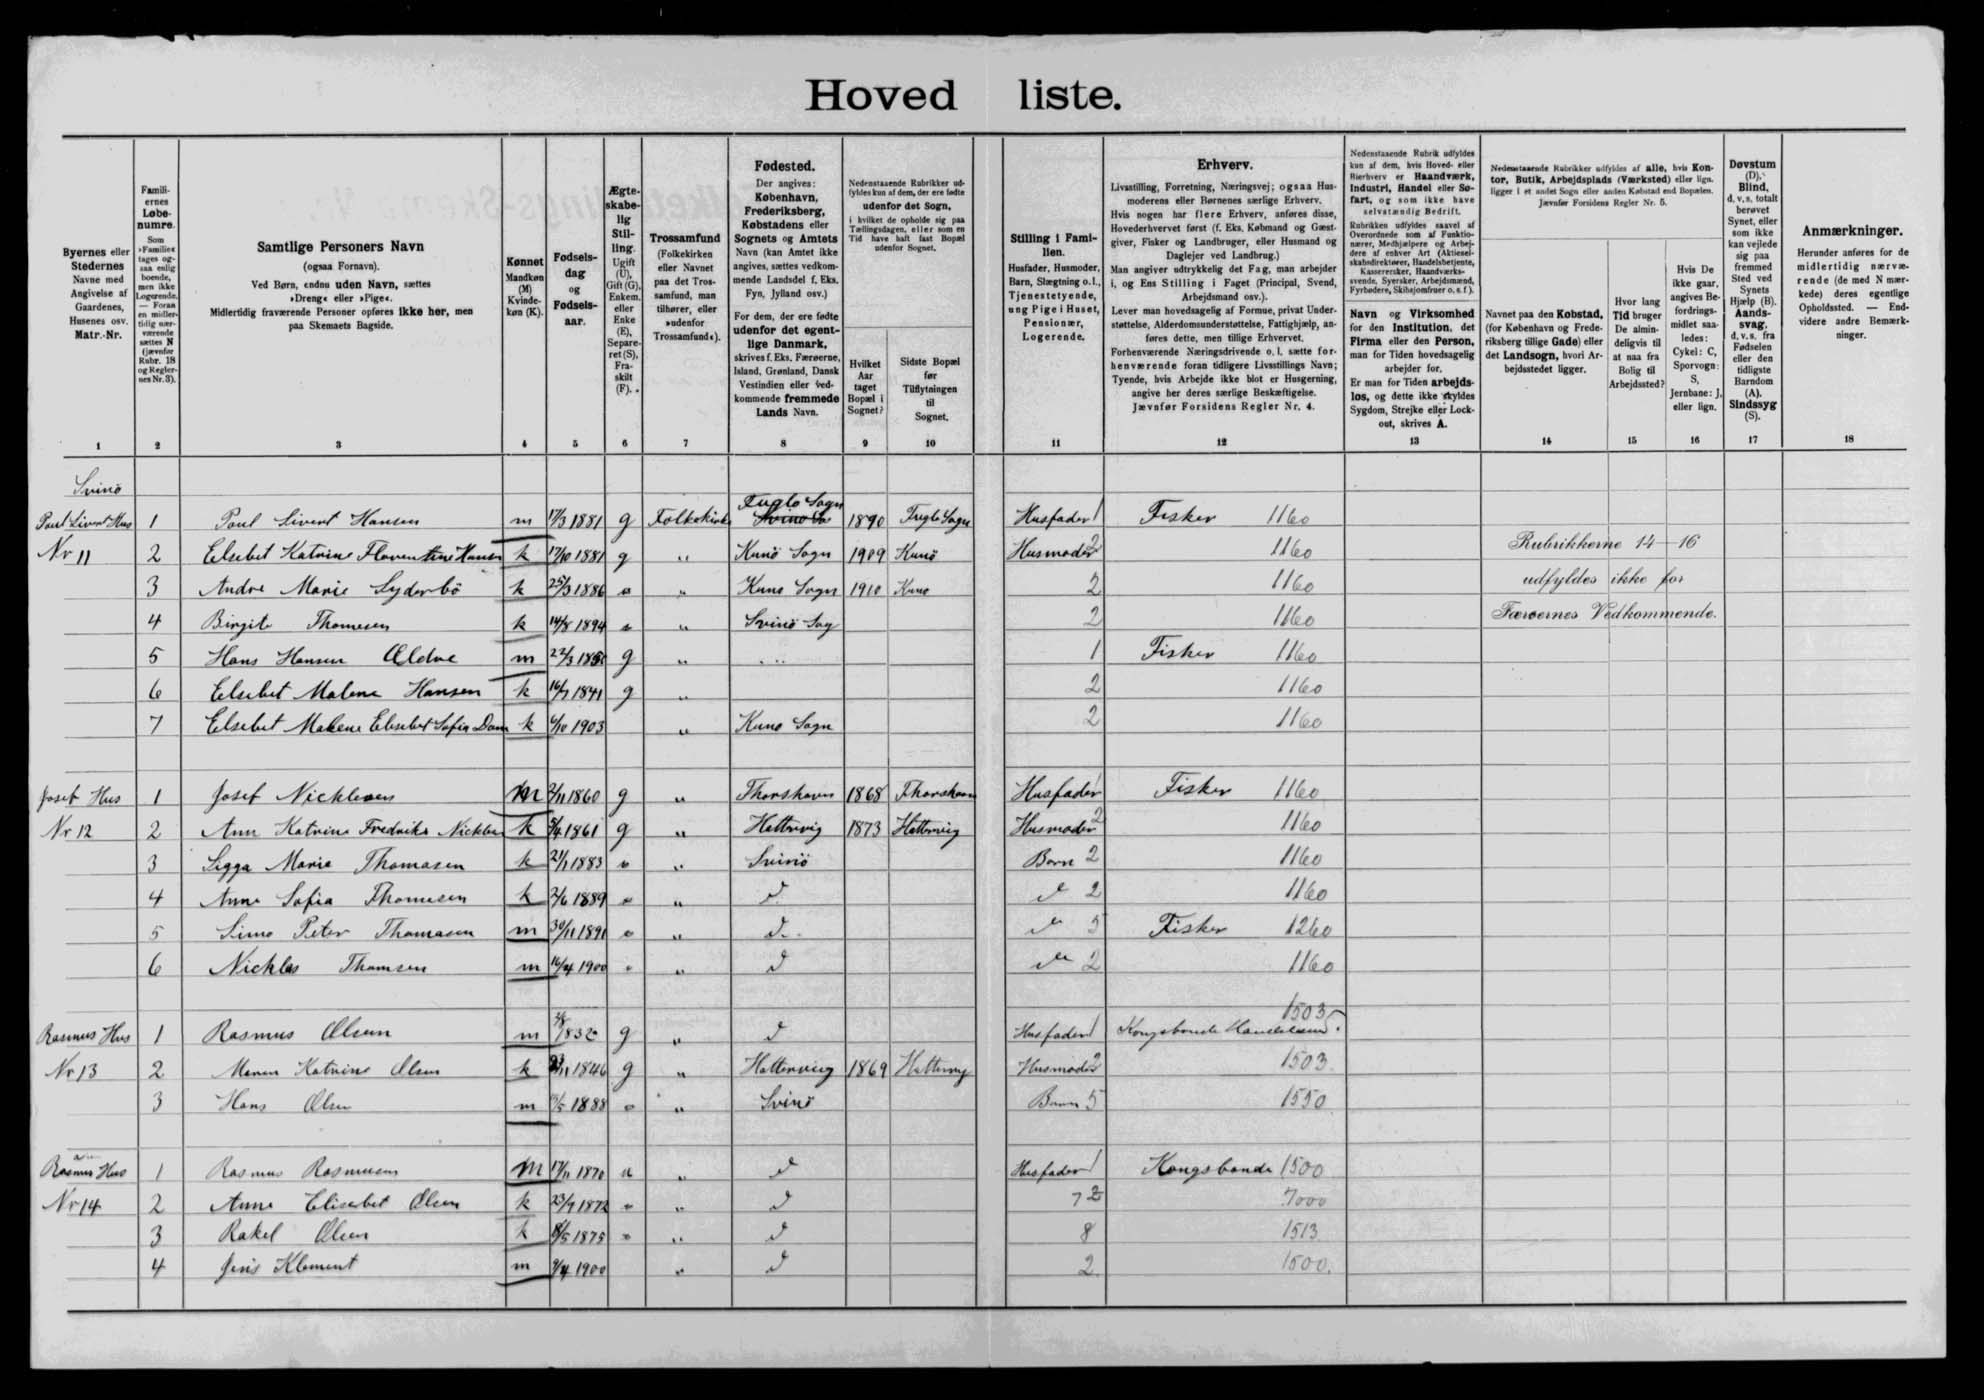 Hoved liste.
Byernes eller
Stedernes
Navne med
Angivelse af
Gaardenes,
Husenes osv.
Matr.-Nr.
1
Famili-
ernes
Løbe-
numre.
Som
»Familie«
tages og-
saa enlig
boende,
men ikke
Logerende.
— Foran
en midler-
tidig nær-
værende
sættes N
(jævnfør
Rubr. 18
og Regler-
nes Nr. 3).
2
Samtlige Personers Navn
(ogsaa Fornavn).
Ved Børn, endnu uden Navn, sættes
»Dreng« eller »Pige«.
Midlertidig fraværende Personer opføres ikke her, men
paa Skemaets Bagside.
3
Kønnet
Mandkøn
(M)
Kvinde-
køn (K).
4
Fødsels-
dag
og
Fødsels-
aar.
5
Ægte-
skabe-
lig
Stil-
ling.
Ugift
(U),
Gift (G),
Enkem.
eller
Enke
(E),
Separe-
ret (S),
Fra-
skilt
(F).
6
Trossamfund
(Folkekirken
eller Navnet
paa det Tros-
samfund, man
tilhører, eller
»udenfor
Trossamfund«).
7
Fødested.
Der angives:
København,
Frederiksberg,
Købstadens eller
Sognets og Amtets
Navn (kan Amtet ikke
angives, sættes vedkom-
mende Landsdel f. Eks.
Fyn, Jylland osv.)
For dem, der ere fødte
udenfor det egent-
lige Danmark,
skrives f. Eks. Færøerne,
Island, Grønland, Dansk
Vestindien eller ved-
kommende fremmede
Lands Navn.
8
Nedenstaaende Rubrikker ud-
fyldes kun af dem, der ere fødte
udenfor det Sogn,
i hvilket de opholde sig paa
Tællingsdagen, eller som en
Tid have haft fast Bopæl
udenfor Sognet.
Hvilket
Aar
taget
Bopæl i
Sognet?
9
Sidste Bopæl
før
Tilflytningen
til
Sognet.
10
Stilling i Fami-
lien.
Husfader, Husmoder,
Barn, Slægtning o. l.,
Tjenestetyende,
ung Pige i Huset,
Pensionær,
Logerende.
11
Erhverv.
Livsstilling, Forretning, Næringsvej; ogsaa Hus-
moderens eller Børnenes særlige Erhverv.
Hvis nogen har flere Erhverv, anføres disse,
Hovederhvervet først (f. Eks. Købmand og Gæst-
giver, Fisker og Landbruger, eller Husmand og
Daglejer ved Landbrug.)
Man angiver udtrykkelig det Fag, man arbejder
i, og Ens Stilling i Faget (Principal, Svend,
Arbejdsmand osv.).
Lever man hovedsagelig af Formue, privat Under-
støttelse, Alderdomsunderstøttelse, Fattighjælp, an-
føres dette, men tillige Erhvervet.
Forhenværende Næringsdrivende o. l. sætte for-
henværende foran tidligere Livsstillings Navn;
Tyende, hvis Arbejde ikke blot er Husgerning,
angive her deres særlige Beskæftigelse.
Jævnfør Forsidens Regler Nr. 4.
12
Nedenstaaende Rubrik udfyldes
kun af dem, hvis Hoved- eller
Bierhverv er Haandværk,
Industri, Handel eller Sø-
fart, og som ikke have
selvstændig Bedrift.
Rubrikken udfyldes saavel af
Overordnede som af Funktio-
nærer, Medhjælpere og Arbej-
dere af enhver Art (Aktiesel-
skabsdirektører, Handelsbetjente,
Kasserersker, Haandværks-
svende, Syersker, Arbejdsmænd,
Fyrbødere, Skibsjomfruer o. s. f.).
Navn og Virksomhed
for den Institution, det
Firma eller den Person,
man for Tiden hovedsagelig
arbejder for.
Er man for Tiden arbejds-
løs, og dette ikke skyldes
Sygdom, Strejke eller Lock-
out, skrives A.
13
Nedenstaaende Rubrikker udfyldes af alle, hvis Kon-
tor, Butik, Arbejdsplads (Værksted) eller lign.
ligger i et andet Sogn eller anden Købstad end Bopælen.
Jævnfør Forsidens Regler Nr. 5.
Navnet paa den Købstad,
(for København og Frede-
riksberg tillige Gade) eller
det Landsogn, hvori Ar-
bejdsstedet ligger.
14
Hvor lang
Tid bruger
De almin-
deligvis til
at naa fra
Bolig til
Arbejdssted?
15
Hvis De
ikke gaar,
angives Be-
fordrings-
midlet saa-
ledes:
Cykel: C,
Sporvogn:
S,
Jernbane: J,
eller lign.
16
Døvstum
(D).
Blind,
d. v. s. totalt
berøvet
Synet, eller
som ikke
kan vejlede
sig paa
fremmed
Sted ved
Synets
Hjælp (B).
Aands-
svag,
d. v. s. fra
Fødselen
eller den
tidligste
Barndom
(A).
Sindssyg
(S).
17
Anmærkninger.
Herunder anføres for de
midlertidig nærvæ-
rende (de med N mær-
kede) deres egentlige
Opholdssted. — End-
videre andre Bemærk-
ninger.
18
Svinö
Poul Sivert Hus 1 Poul Sivert Hansen m 17/3 1881 g Folkekirke Fuglö Sogn Svinö So 1890 Fuglö Sogn Husfader 1 Fisker 1160
Nr 11 2 Elsebet Katrine Florentine Hansen k 17/10 1881 g " Kunö Sogn 1909 Kunö Husmoder 2 1160 Rubrikkerne 14—16
3 Andre Marie Lyderbö k 25/3 1886 " Kunö Sogn 1910 Kunö 2 1160 udfyldes ikke for
4 Birgite Thomesen k 14/8 1894 " Svinö Sog 2 1160 Færøernes Vedkommende.
5 Hans Hansen Ældre m 22/3 g " 1 Fisker 1160
6 Elsebet Malene Hansen k 16/7 1841 g " 2 1160
7 Elsebet Malene Elsebet Sofia Dam k 6/10 1903 " Kunö Sogn 2 1160
Josef Hus 1 Josef Nicklesen m 2/11 1860 g " Thorshavn 1868 Thorshavn Husfader 1 Fisker 1160
Nr 12 2 Ann Katrine Fredrike Nickles k 5/4 1861 g " Hattervig 1873 Hattervig Husmoder 2 1160
3 Sigga Marie Thomasen k 21/1 1883 " Svinö Barn 2 1160
4 Anne Sofia Thomesen k 2/6 1889 " d 2 1160
5 Simo Peter Thomasen m 30/11 1891 " d. 5 Fisker 1260
6 Nicklas Thomsen m 16/4 1900 " d 2 1160
1503
Rasmus Hus 1 Rasmus Olsen m 1832 g " d Husfader 1 Kongsbonde
Nr 13 2 Maren Katrine Olsen k 1846 g " Hattervig 1869 Hattervig Husmoder 2 1503
3 Hans Olsen m 1888 " Svinö Barn 5 1550
Rasmus Hus 1 Rasmus Rasmusen m 17/11 1870 u " d Husfader 1 Kongsbonde 1500
Nr 14 2 Anne Elisebet Olsen k 23/7 1872 " d 7 2 7000
3 Rakel Olsen k 1875 " d 8 1513
4 Jens Klement m 9/4 1900 " d 2 1500.